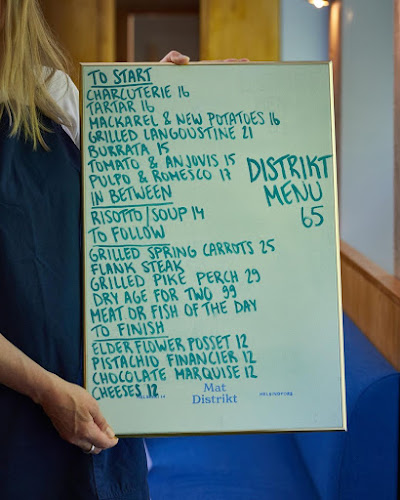 TO START
CHARCUTERIE 16
TARTAR 16
MACKAREL & NEW POTATOES 16
GRILLED LANGOUSTINE 21
BURRATA 15
TOMATO & ANJOVIS 15
PULPO & ROMESCO 17
IN BETWEEN
RISOTTO/SOUP 14
TO FOLLOW
GRILLED SPRING CARROTS 25
FLANK STEAK
GRILLED PIKE PERCH 29
DRY AGE FOR TWO 99
MEAT OR FISH OF THE DAY
TO FINISH
ELDERFLOWER POSSET 12
PISTACHIO FINANCIER 12
CHOCOLATE MARQUISE 12
CHEESES 12
DISTRIKT
MENU
65
Mat
Distrikt